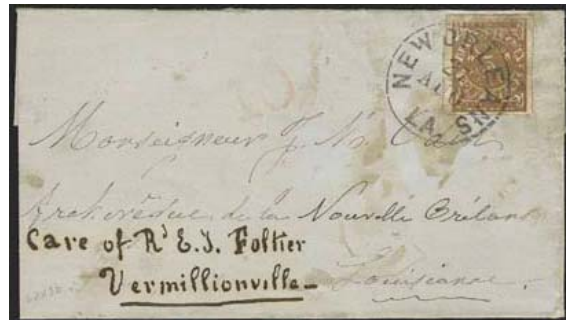 NEW ORLEANS
LA.
Monseigneur J. M.
Archevêque de la Nouvelle Orléans
Care of R^d E. J. Foltier
Vermillionville
Louisianne.